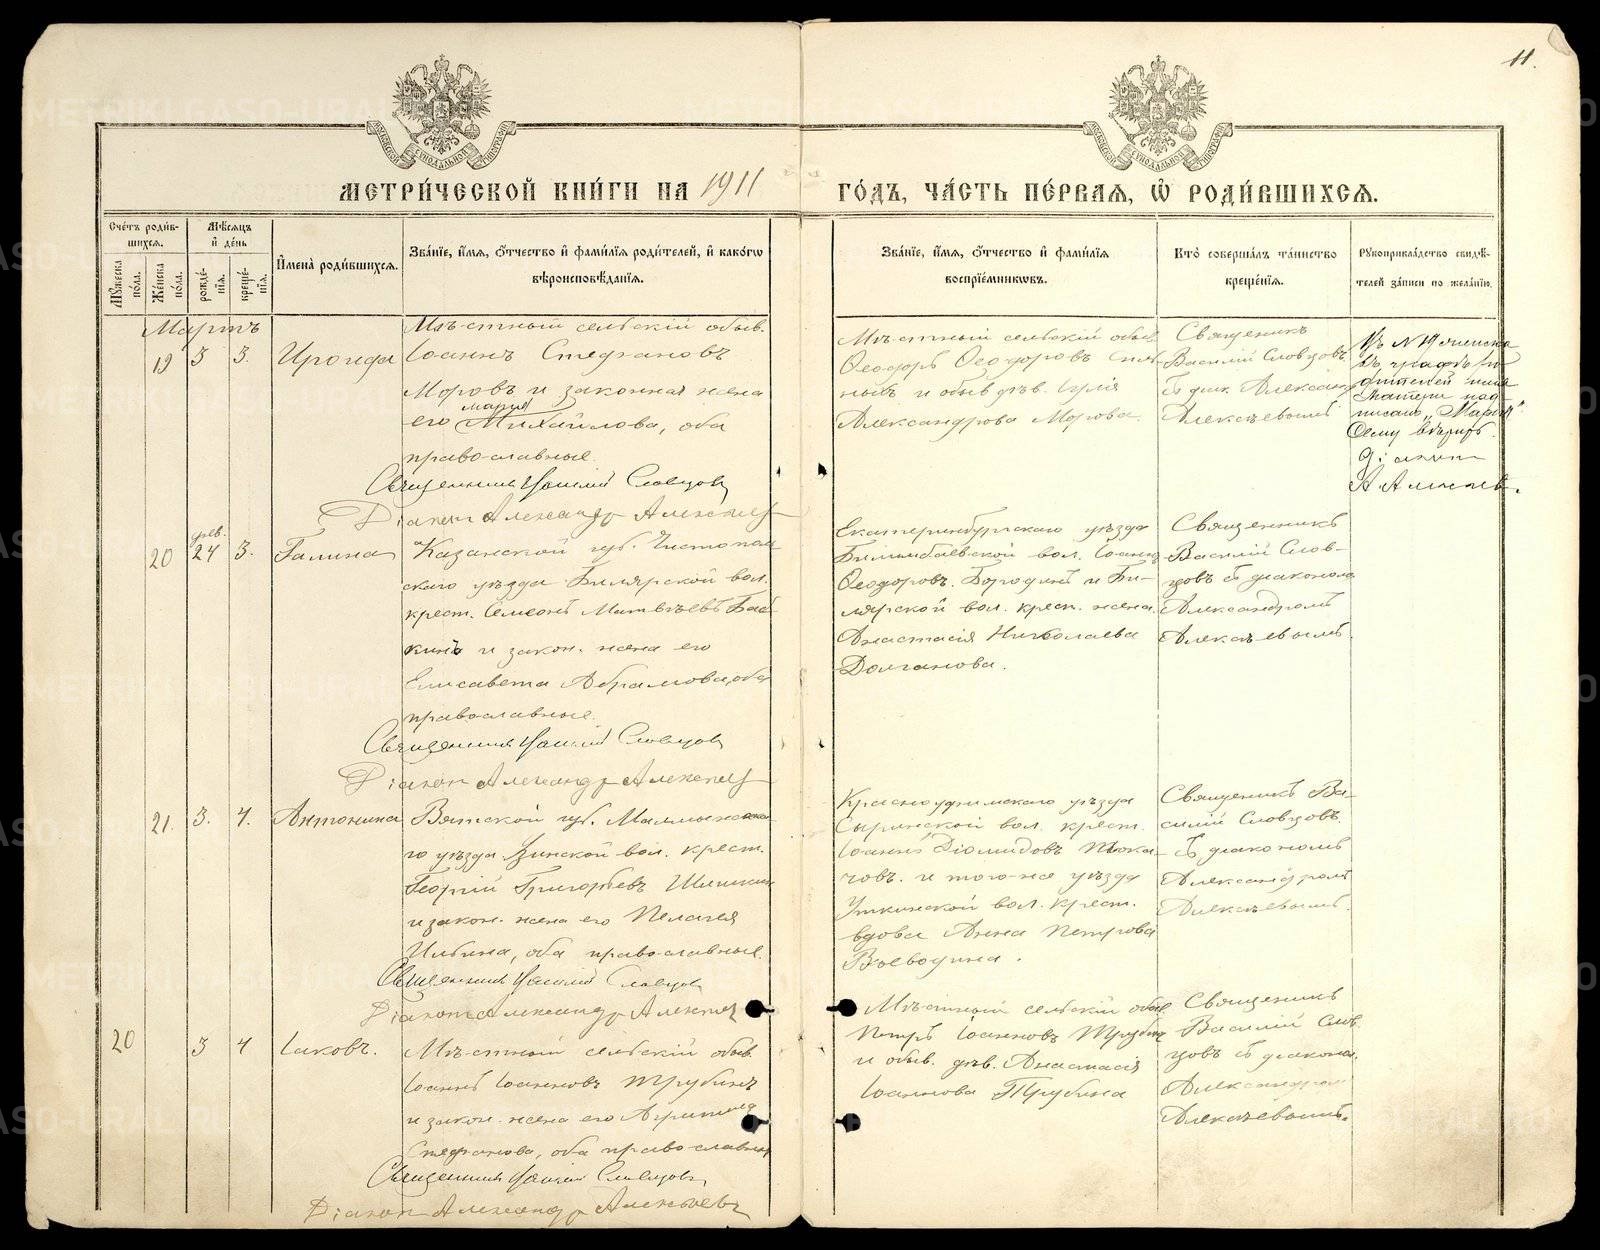 11.
МОСКОВСКОЙ СѴНОДАЛЬНОЙ ТИПОГРАФІИ
МОСКОВСКОЙ СѴНОДАЛЬНОЙ ТИПОГРАФІИ
МЕТРИ́ЧЕСКОЙ КНИ́ГИ НА 1911
ГО́ДЪ, ЧА́СТЬ ПЕ́РВАЯ, Ѡ҆ РОДИ́ВШИХСЯ.
Сче́тъ роди́вшихся.
Мꙋ́жеска по́ла.
Же́нска по́ла.
Мѣ́сяцъ и҆ де́нь
рожде́нія.
креще́нія.
И҆мена̀ роди́вшихся.
Зва́ніе, и҆́мя, ѻ҆́тчество и҆ фами́лія роди́телей, и҆ како́гѡ
вѣроисповѣ́данія.
Зва́ніе, и҆́мя, ѻ҆́тчество и҆ фами́лія
воспріе́мникѡвъ.
Кто̀ соверша́лъ та́инство
креще́нія.
Рꙋкоприкла́дство свидѣ́-
телей за́писи по жела́нію.
Мартъ
19 3 3. Ироида
Мѣстный сельскій обыв.
Іоаннъ Стефановъ
Моровъ и законная жена
Марія
его Михайлова, оба
православные.
Священникъ Василій Словцовъ
Діаконъ Александръ Алексѣевъ
Мѣстный сельскій обыв.
Ѳеодоръ Ѳеодоровъ
ный и обыв. дѣв. Юлія
Александрова Морова.
Священникъ
Василій Словцовъ
съ діак. Александ
Алексѣевымъ
Къ № 19 женска
въ графѣ ро
дителей имя
Матери над-
писано „Марія“
Сему вѣрить.
Діаконъ
А Алексѣев.
февр.
20 24 3. Галина
Казанской губ. Чистополь
скаго уѣзда Билярской вол.
крест. Симеонъ Матвѣевъ Баб
кинъ и закон. жена его
Елисавета Абрамова, оба
православные.
Священникъ Василій Словцовъ
Діаконъ Александръ Алексѣевъ
Екатеринбургскаго уѣзда
Билимбаевской вол. Іоаннъ
Ѳеодоровъ Бородинъ и Би-
лярской вол. крест. жена
Анастасія Николаева
Долганова.
Священникъ
Василій Слов-
цовъ съ діакономъ
Александромъ
Алексѣевымъ.
21. 3. 4. Антонина
Вятской губ. Малмыжска-
го уѣзда Зинской вол. крест.
Георгій Григорьевъ Шишкин
и закон. жена его Пелагея
Ильина, оба православные.
Священникъ Василій Словцовъ
Діаконъ Александръ Алексѣевъ
Красноуфимскаго уѣзда
Сыринской вол. крест.
Іоаннъ Діомидовъ Тока-
човъ. и того-же уѣзда
Уткинской вол. крест.
вдова Анна Петрова
Воеводина.
Священникъ Ва-
силій Словцовъ.
съ діакономъ
Александромъ
Алексѣевымъ.
20 3 4 Іаковъ.
Мѣстный сельскій обыв.
Іоаннъ Іоанновъ Трубинъ
и закон. жена его Агрипина
Стефанова, оба православные
Священникъ Василій Словцовъ
Діаконъ Александръ Алексѣевъ
Мѣстный сельскій обыв.
Петръ Іоанновъ Трубин
и обыв. дѣв. Анастасія
Іоаннова Трубина
Священникъ
Василій Слов
цовъ съ діакономъ
Александром
Алексѣевымъ.